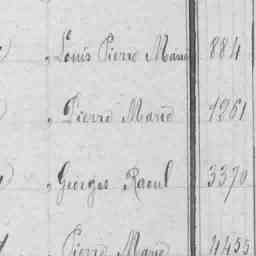 , Louis Pierre Marie 884
, Pierre Marie 1361
, Georges Raoul 3370
, Pierre Marie 4455